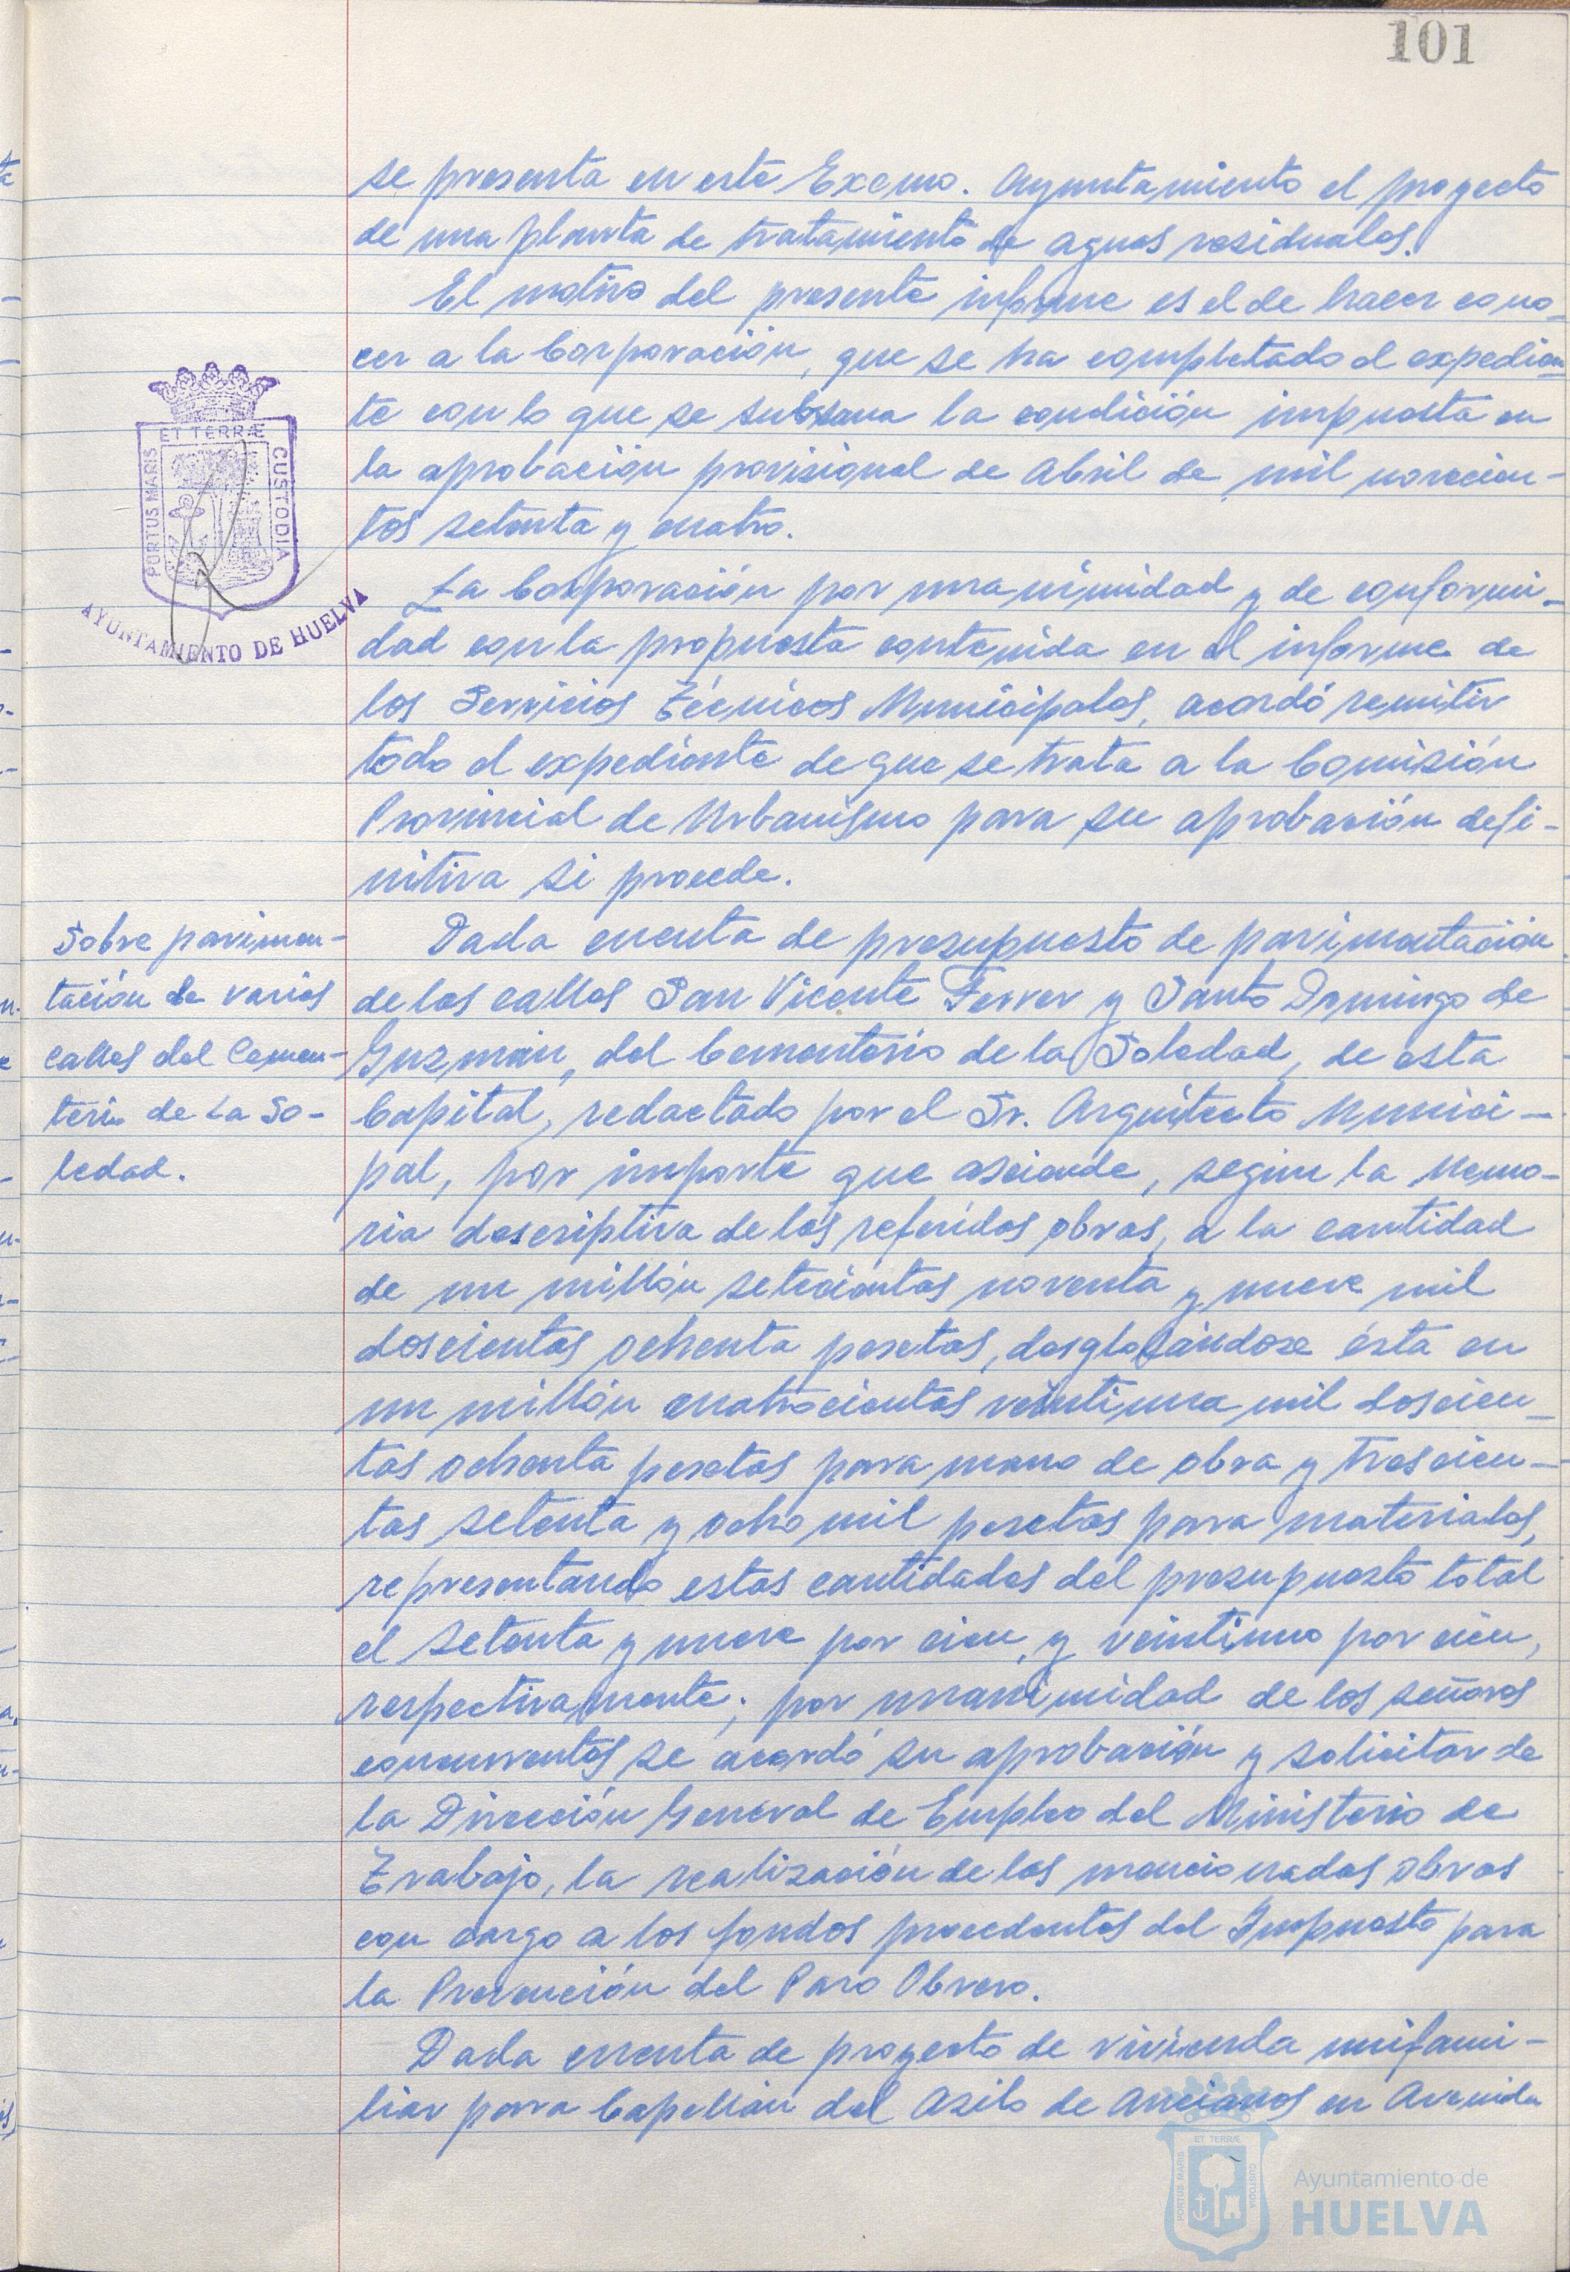 101
se presenta en este Excmo. Ayuntamiento el proyecto
de una planta de tratamiento de aguas residuales.
El motivo del presente informe es el de hacer cono-
cer a la Corporación, que se ha completado el expedien-
te con lo que se subsana la condición impuesta en
la aprobación provisional de Abril de mil novecien-
tos setenta y cuatro.
La Corporación por unanimidad y de conformi-
dad con la propuesta contenida en el informe de
los Servicios Técnicos Municipales, acordó remitir
todo el expediente de que se trata a la Comisión
Provincial de Urbanismo para su aprobación defi-
nitiva si procede.
Sobre pavimen-
tación de varias
calles del Cemen-
terio de La So-
ledad.
Dada cuenta de presupuesto de pavimentación
de las calles San Vicente Ferrer y Santo Domingo de
Guzmán, del Cementerio de la Soledad, de esta
Capital, redactado por el Sr. Arquitecto Munici-
pal, por importe que asciende, según la Memo-
ria descriptiva de las referidas obras, a la cantidad
de un millón setecientas noventa y nueve mil
doscientas ochenta pesetas, desglosándose ésta en
un millón cuatrocientas veintiuna mil doscien-
tas ochenta pesetas para mano de obra y trescien-
tas setenta y ocho mil pesetas para materiales,
representando estas cantidades del presupuesto total
el setenta y nueve por cien, y veintiuno por cien,
respectivamente; por unanimidad de los señores
concurrentes se acordó su aprobación y solicitar de
la Dirección General de Empleo del Ministerio de
Trabajo, la realización de las mencionadas obras
con cargo a los fondos procedentes del Impuesto para
la Prevención del Paro Obrero.
Dada cuenta de proyecto de vivienda unifami-
liar para Capellán del Asilo de Ancianos en Avenida
PORTUS MARIS ET TERRÆ CUSTODIA
AYUNTAMIENTO DE HUELVA
PORTUS MARIS ET TERRÆ CUSTODIA
Ayuntamiento de
HUELVA